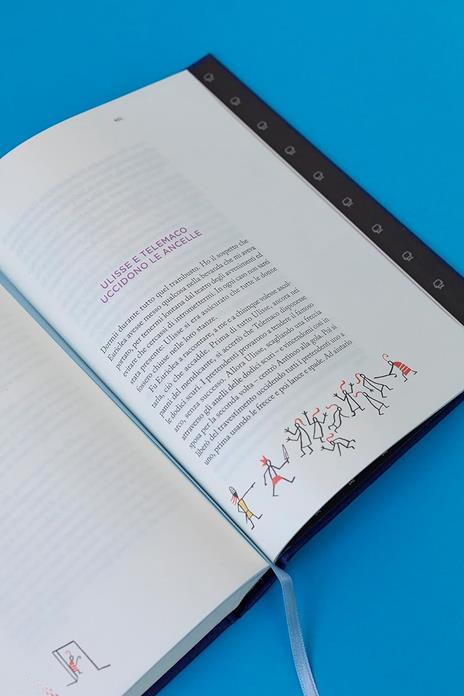 ULISSE E TELEMACO
UCCIDONO LE ANCELLE
Dormii durante tutto quel trambusto. Ho il sospetto che
Euriclea avesse messo qualcosa nella bevanda che mi aveva
portato, per tenermi lontana dal teatro degli avvenimenti ed
evitare che cercassi di intromettermi. In ogni caso non sarei
stata presente. Ulisse si era assicurato che tutte le donne
fossero chiuse nelle loro stanze.
Fu Euriclea a raccontare, a me e a chiunque volesse ascol-
tarla, ciò che accadde. Prima di tutto Ulisse, ancora nei
panni del mendicante, si accertò che Telemaco disponesse
le dodici scuri. I pretendenti provarono a tendere il famoso
arco, senza successo. Allora Ulisse, scagliando una freccia
attraverso gli anelli delle dodici scuri – e vincendomi così in
sposa per la seconda volta – centrò Antinoo alla gola. Poi si
liberò del travestimento uccidendo tutti i pretendenti uno a
uno, prima usando le frecce e poi lance e spade. Ad aiutarlo